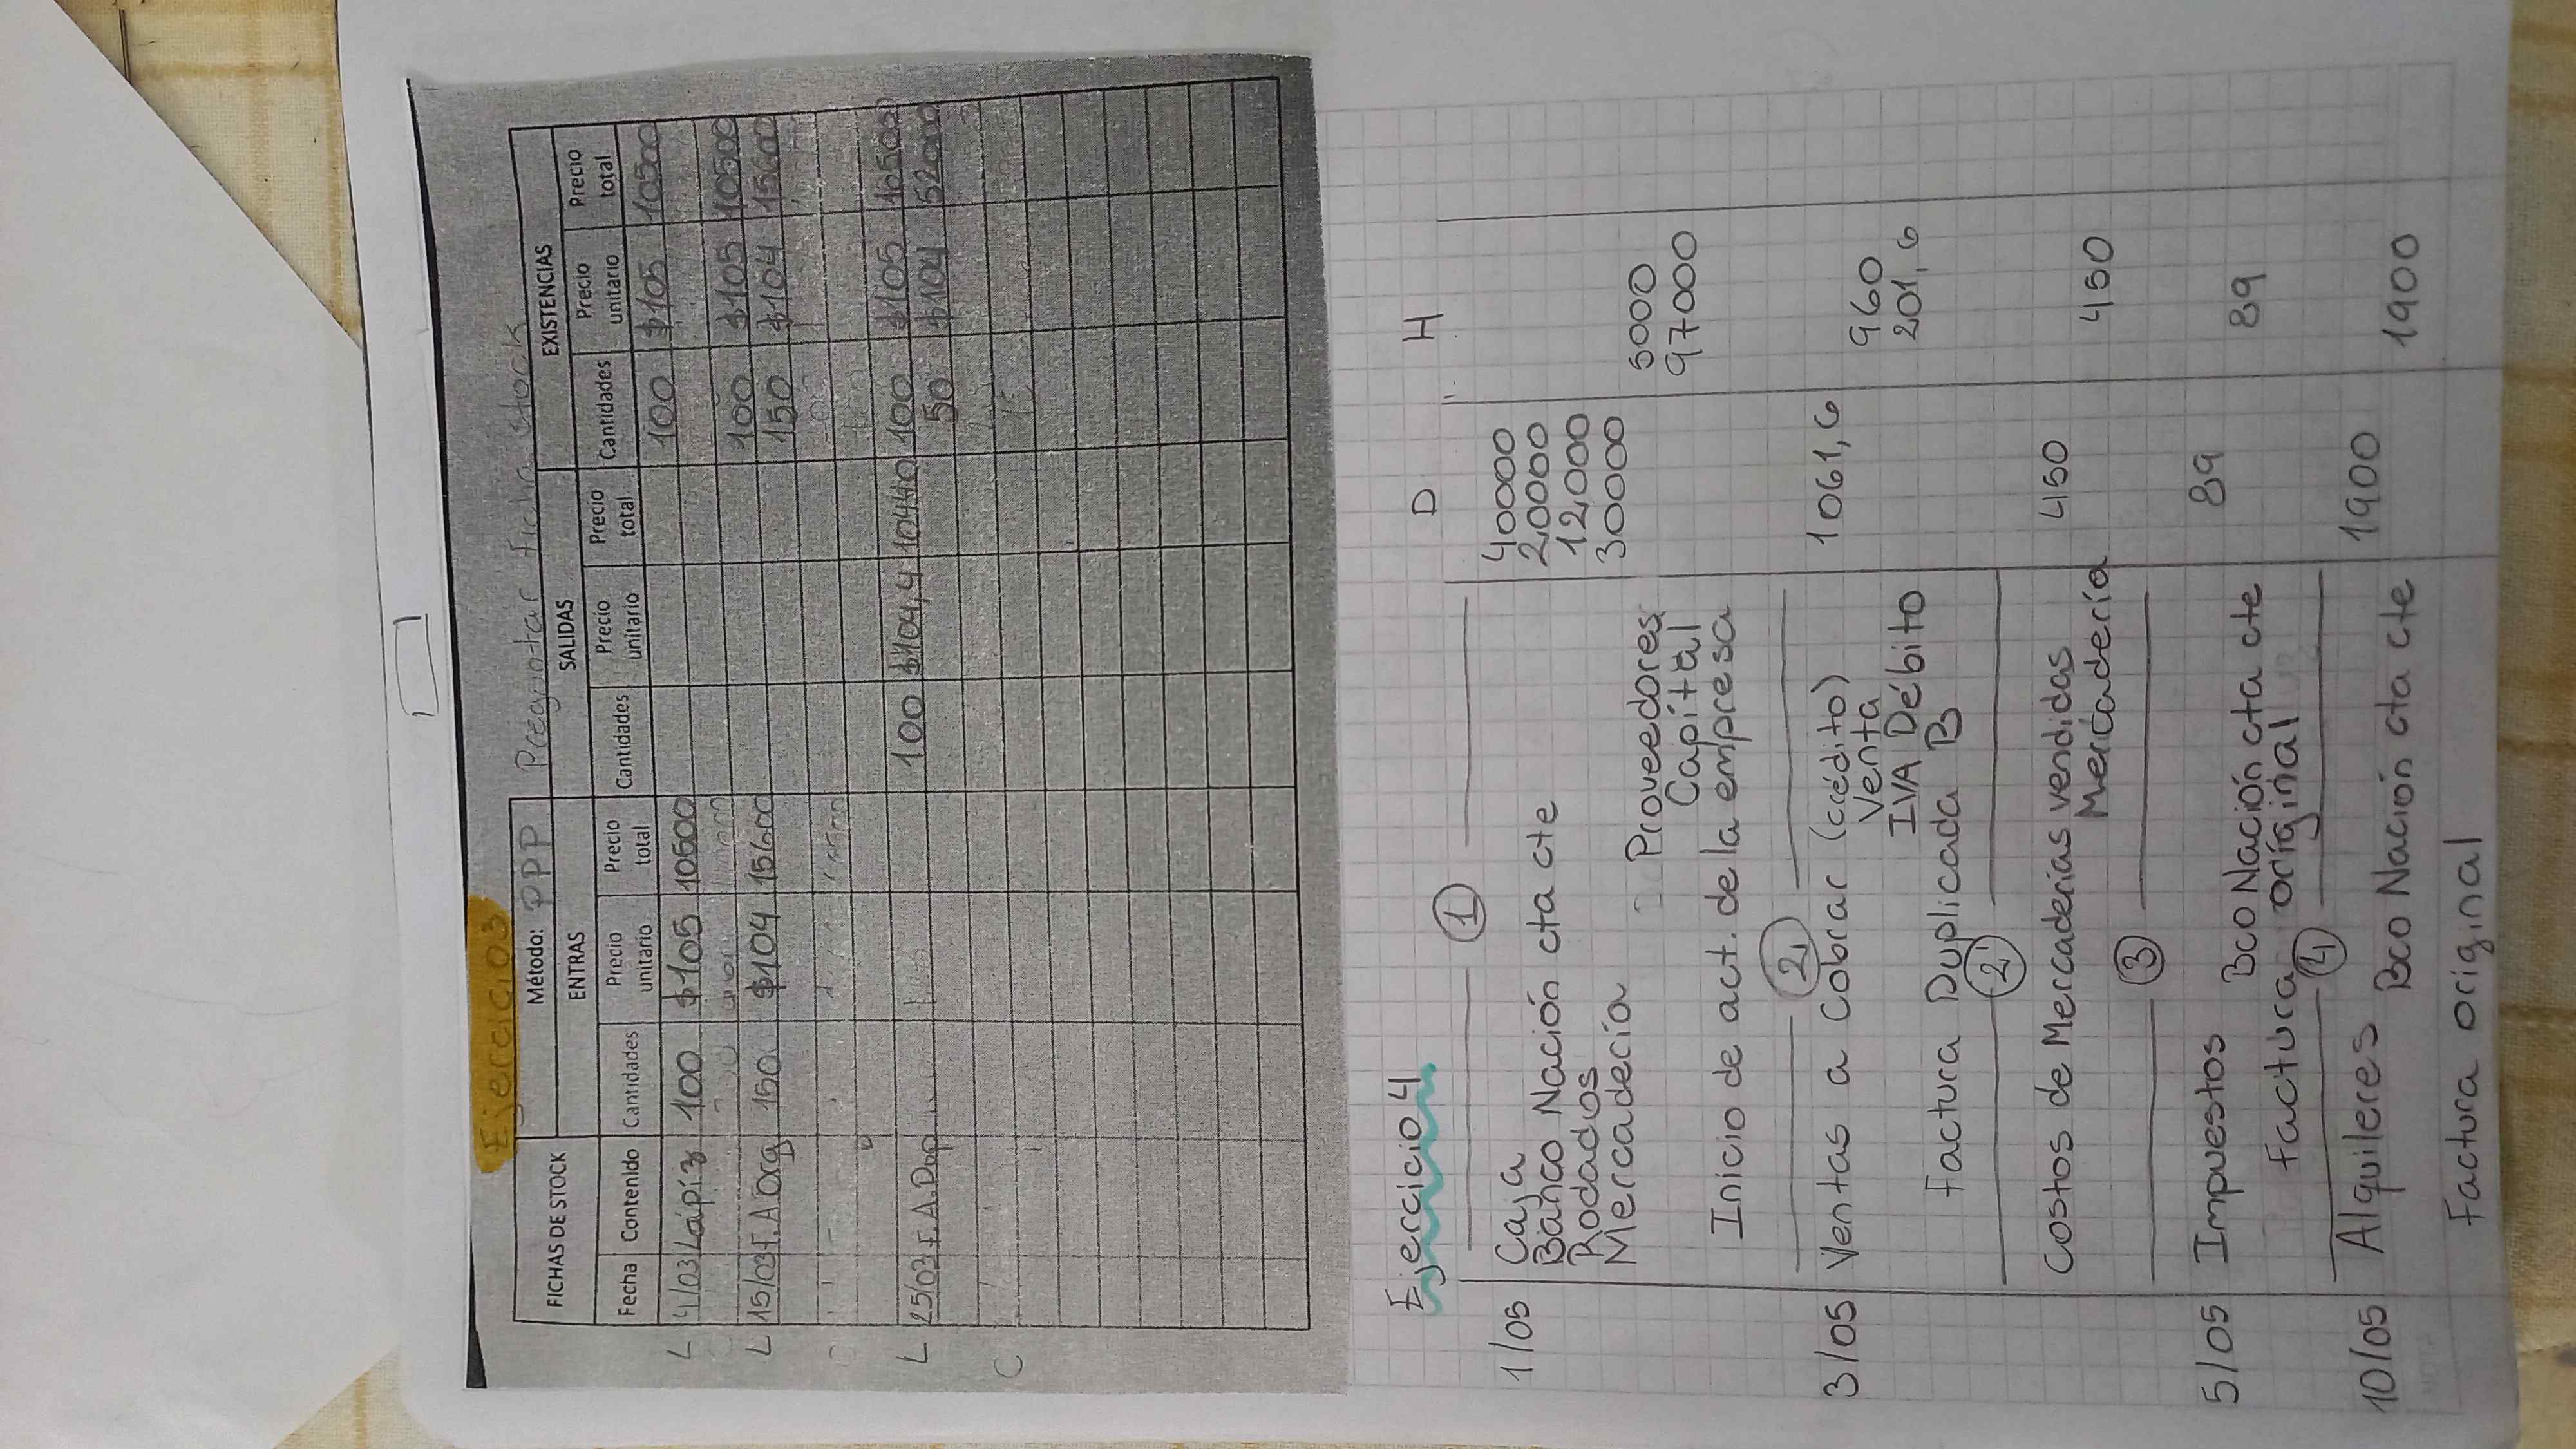 Ejercicio 3
Preguntar ficha stock
FICHAS DE STOCK Método: PPP
ENTRAS SALIDAS EXISTENCIAS
Fecha Contenido Cantidades Precio unitario Precio total Cantidades Precio unitario Precio total Cantidades Precio unitario Precio total
L 4/03 Lápiz 100 $105 10500 100 $105 10500
100 $105 10500
L 15/03 F.A Org 150 $104 15600 150 $104 15600
L 25/03 F.A.Dup 100 $104,4 10440 100 $105 10500
50 $104 52000
C
Ejercicio 4
D H
1
1/05 Caja 40000
Banco Nación cta cte 20000
Rodados 12000
Mercadería 30000
Proveedores 5000
Capital 97000
Inicio de act. de la empresa
2
3/05 Ventas a cobrar (crédito) 1061,6
Venta 960
IVA Débito 201,6
Factura Duplicada B
2
Costos de Mercaderías vendidas 450
Mercadería 450
3
5/05 Impuestos 89
Bco Nación cta cte 89
Factura original
4
10/05 Alquileres 1900
Bco Nación cta cte 1900
Factura original